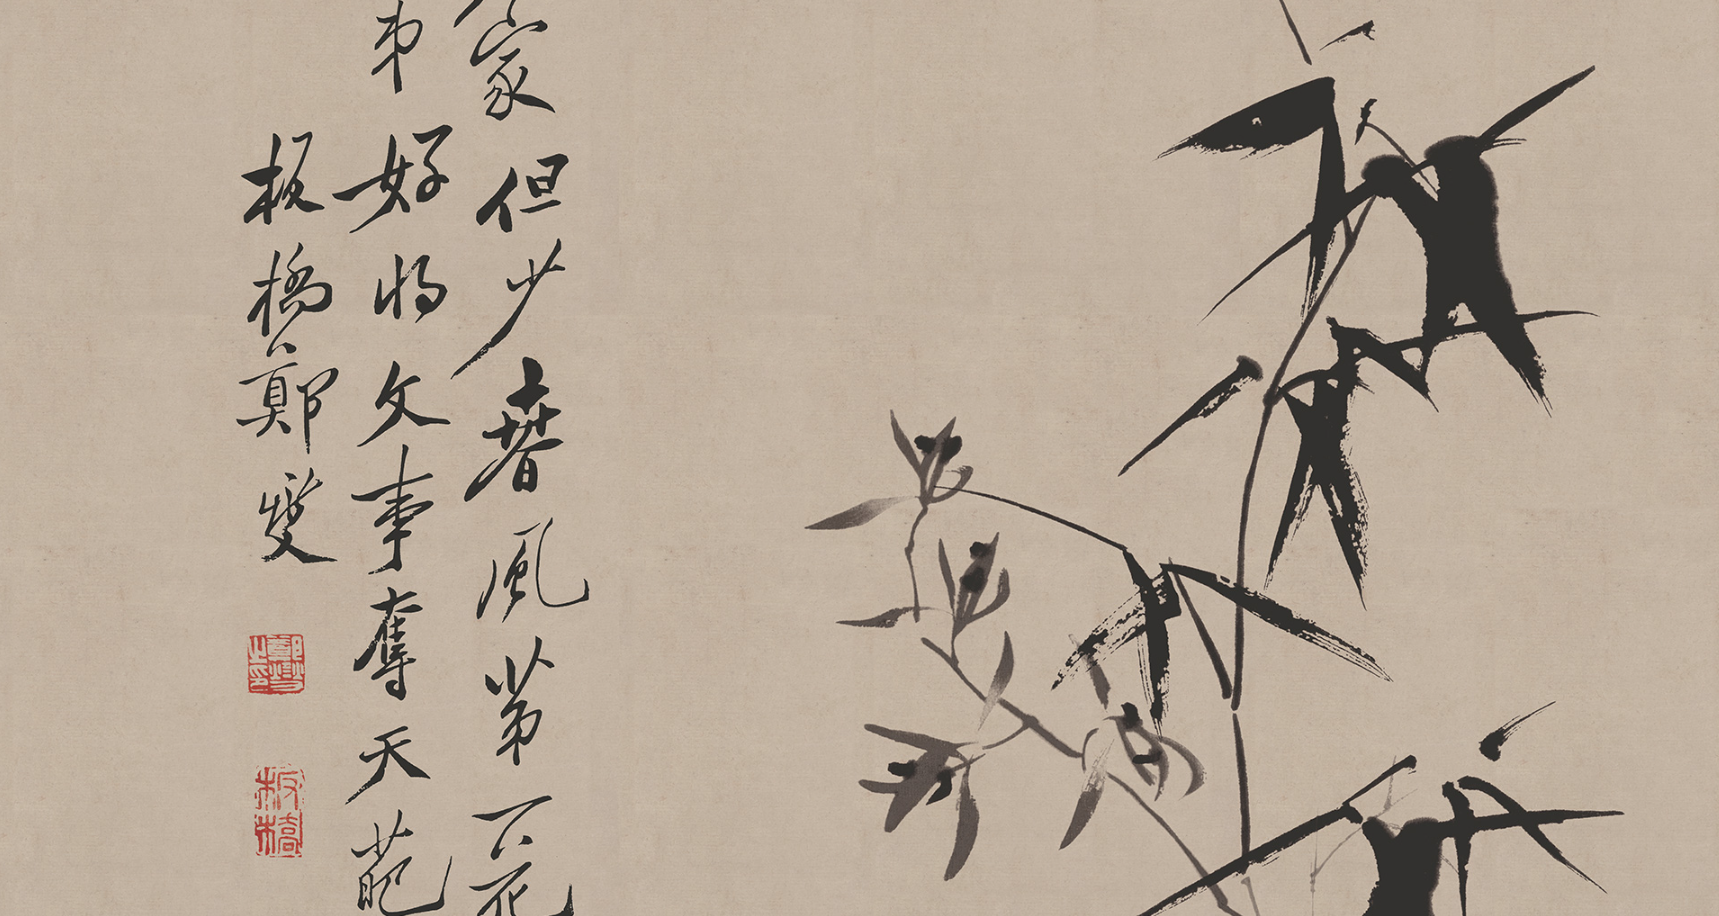 家但少春風第一花
好将文事奪天葩
板橋鄭燮
鄭燮之印
板橋